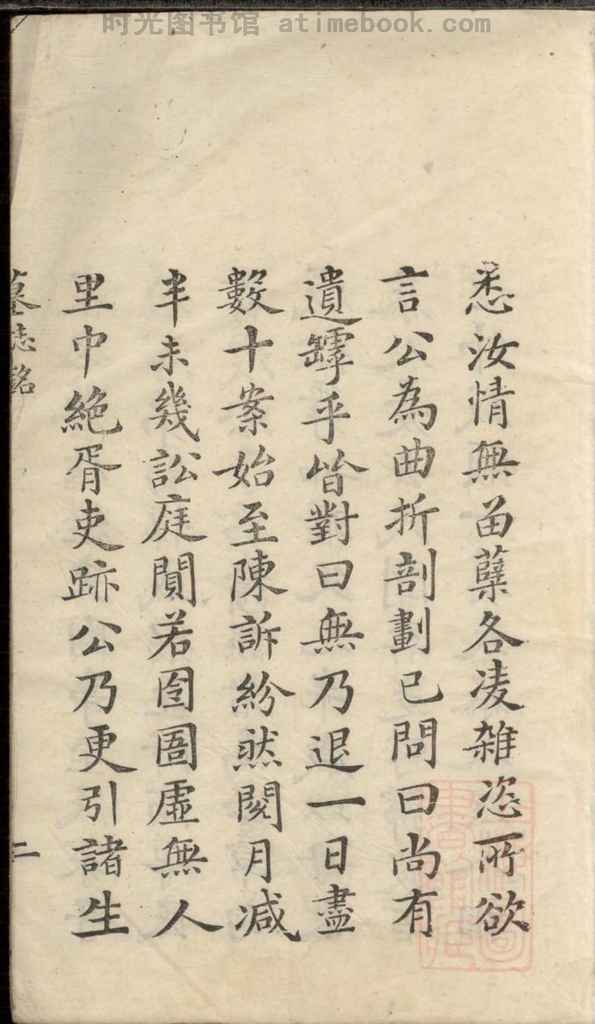 时光图书馆 atimebook.com
悉汝情無畱蘖各凌雜恣所欲
言公為曲折剖劃已問曰尚有
遺罅乎皆對曰無乃退一日盡
數十案始至陳訴紛然閱月减
半未幾訟庭闃若囹圄虛無人
里中絶胥吏跡公乃更引諸生
墓志銘
二